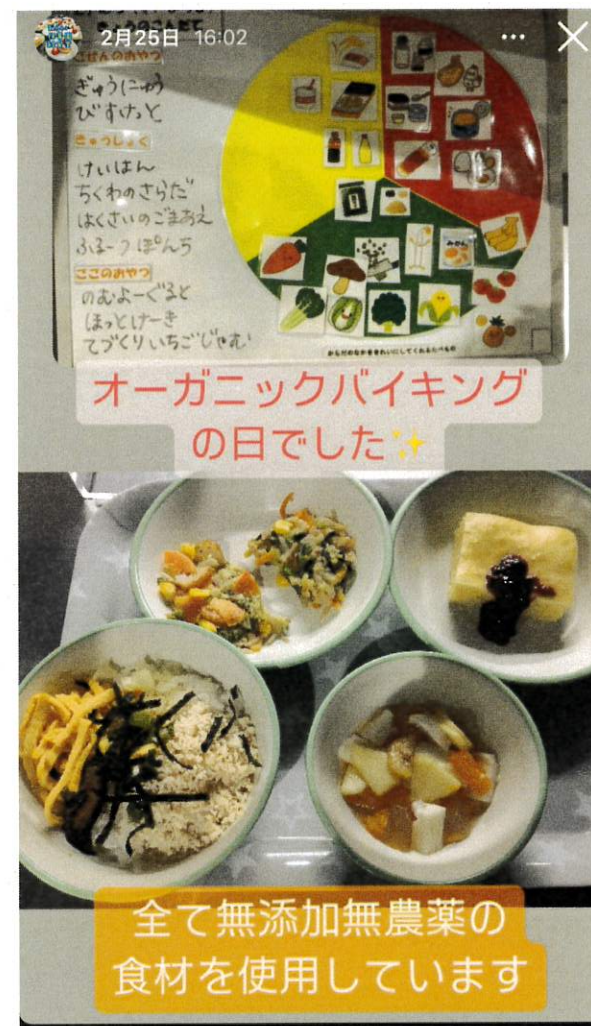 2月25日 16:02
きょうのこんだて
ごぜんのおやつ
ぎゅうにゅう
びすけっと
きゅうしょく
けいはん
ちくわのさらだ
はくさいのごまあえ
ふるーつぽんち
ごごのおやつ
のむよーぐると
ほっとけーき
てづくりいちごじゃむ
みかん
からだのなかをきれいにしてくれるたべもの
オーガニックバイキング
の日でした✨
全て無添加無農薬の
食材を使用しています